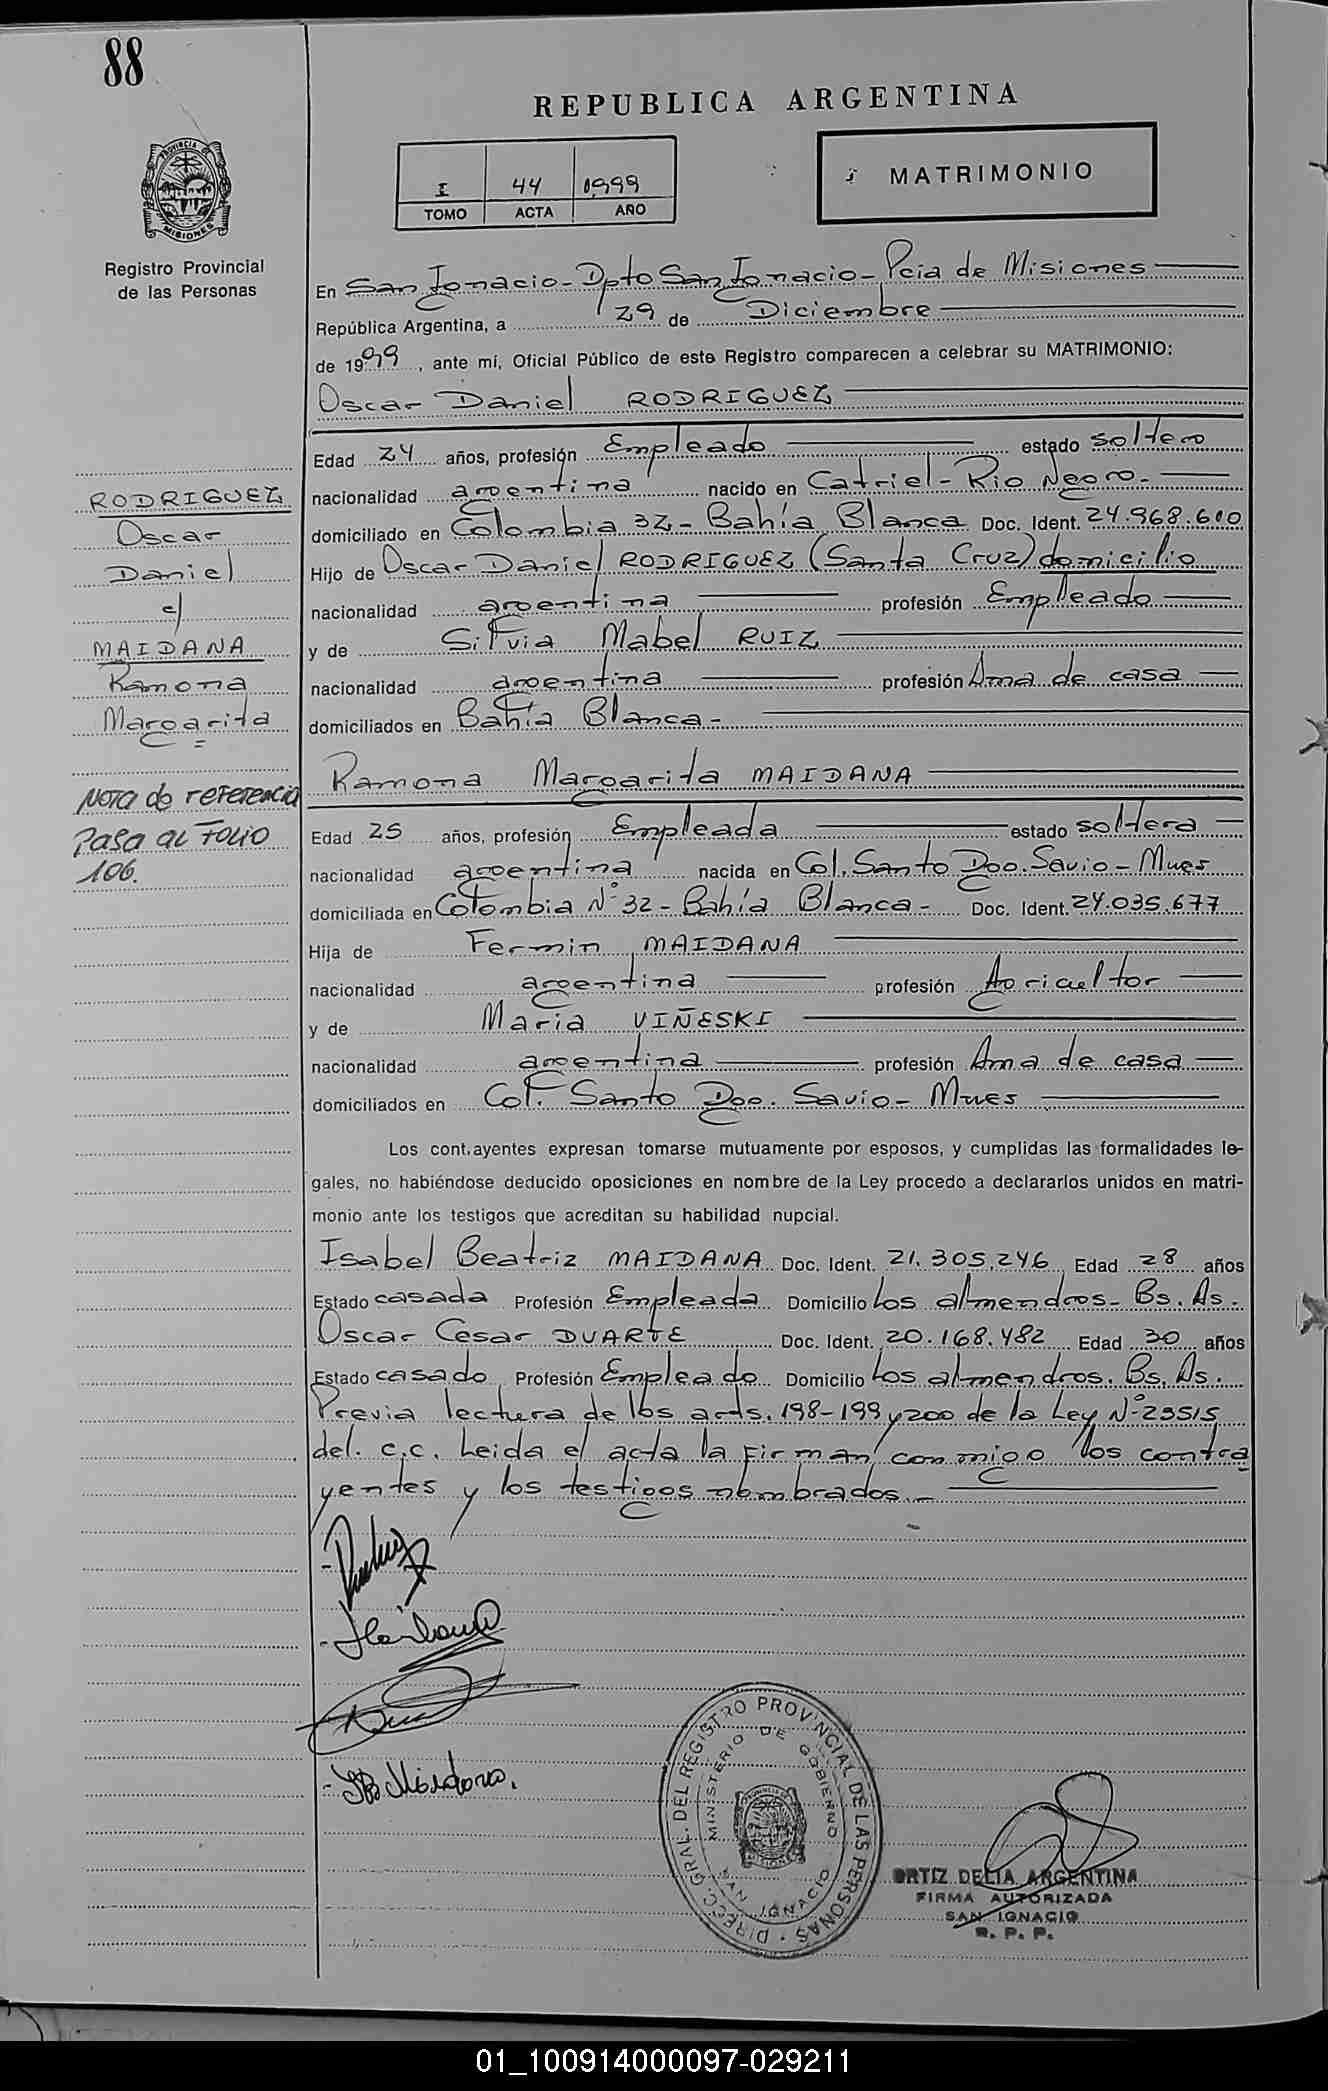 88
REPUBLICA ARGENTINA
I 44 1999
TOMO ACTA AÑO
MATRIMONIO
PROVINCIA DE MISIONES
Registro Provincial
de las Personas
En San Ignacio - Dpto San Ignacio - Pcia de Misiones
República Argentina, a 29 de Diciembre
de 1999, ante mí, Oficial Público de este Registro comparecen a celebrar su MATRIMONIO:
Oscar Daniel RODRIGUEZ
Edad 24 años, profesión Empleado estado soltero
nacionalidad argentina nacido en Catriel - Rio Negro.-
domiciliado en Colombia 32 - Bahía Blanca Doc. Ident. 24.968.610
Hijo de Oscar Daniel RODRIGUEZ (Santa Cruz) domicilio
nacionalidad argentina profesión Empleado
y de Silvia Mabel RUIZ
nacionalidad argentina profesión Ama de casa
domiciliados en Bahía Blanca -
RODRIGUEZ
Oscar
Daniel
c/
MAIDANA
Ramona
Margarita
Nota de referencia
Pasa al Folio
106.
Ramona Margarita MAIDANA
Edad 25 años, profesión Empleada estado soltera
nacionalidad argentina nacida en Col. Santo Dgo. Savio - Mnes
domiciliada en Colombia N° 32 - Bahía Blanca - Doc. Ident. 24.035.677
Hija de Fermin MAIDANA
nacionalidad argentina profesión Agricultor
y de Maria VIÑESKI
nacionalidad argentina profesión Ama de casa
domiciliados en Col. Santo Dgo. Savio - Mnes
Los cont.ayentes expresan tomarse mutuamente por esposos, y cumplidas las formalidades le-
gales, no habiéndose deducido oposiciones en nombre de la Ley procedo a declararlos unidos en matri-
monio ante los testigos que acreditan su habilidad nupcial.
Isabel Beatriz MAIDANA Doc. Ident. 21.305.246 Edad 28 años
Estado casada Profesión Empleada Domicilio Los almendros - Bs. As.
Oscar Cesar DUARTE Doc. Ident. 20.168.482 Edad 30 años
Estado casado Profesión Empleado Domicilio Los almendros. Bs. As.
Previa lectura de los arts. 198-199 y 200 de la Ley N° 23515
del. c.c. Leida el acta la firman conmigo los contra
yentes y los testigos nombrados.-
DIRECC. GRAL. DEL REGISTRO PROVINCIAL DE LAS PERSONAS
MINISTERIO DE GOBIERNO
SAN IGNACIO
ORTIZ DELIA ARGENTINA
FIRMA AUTORIZADA
SAN IGNACIO
R. P. P.
01_100914000097-029211